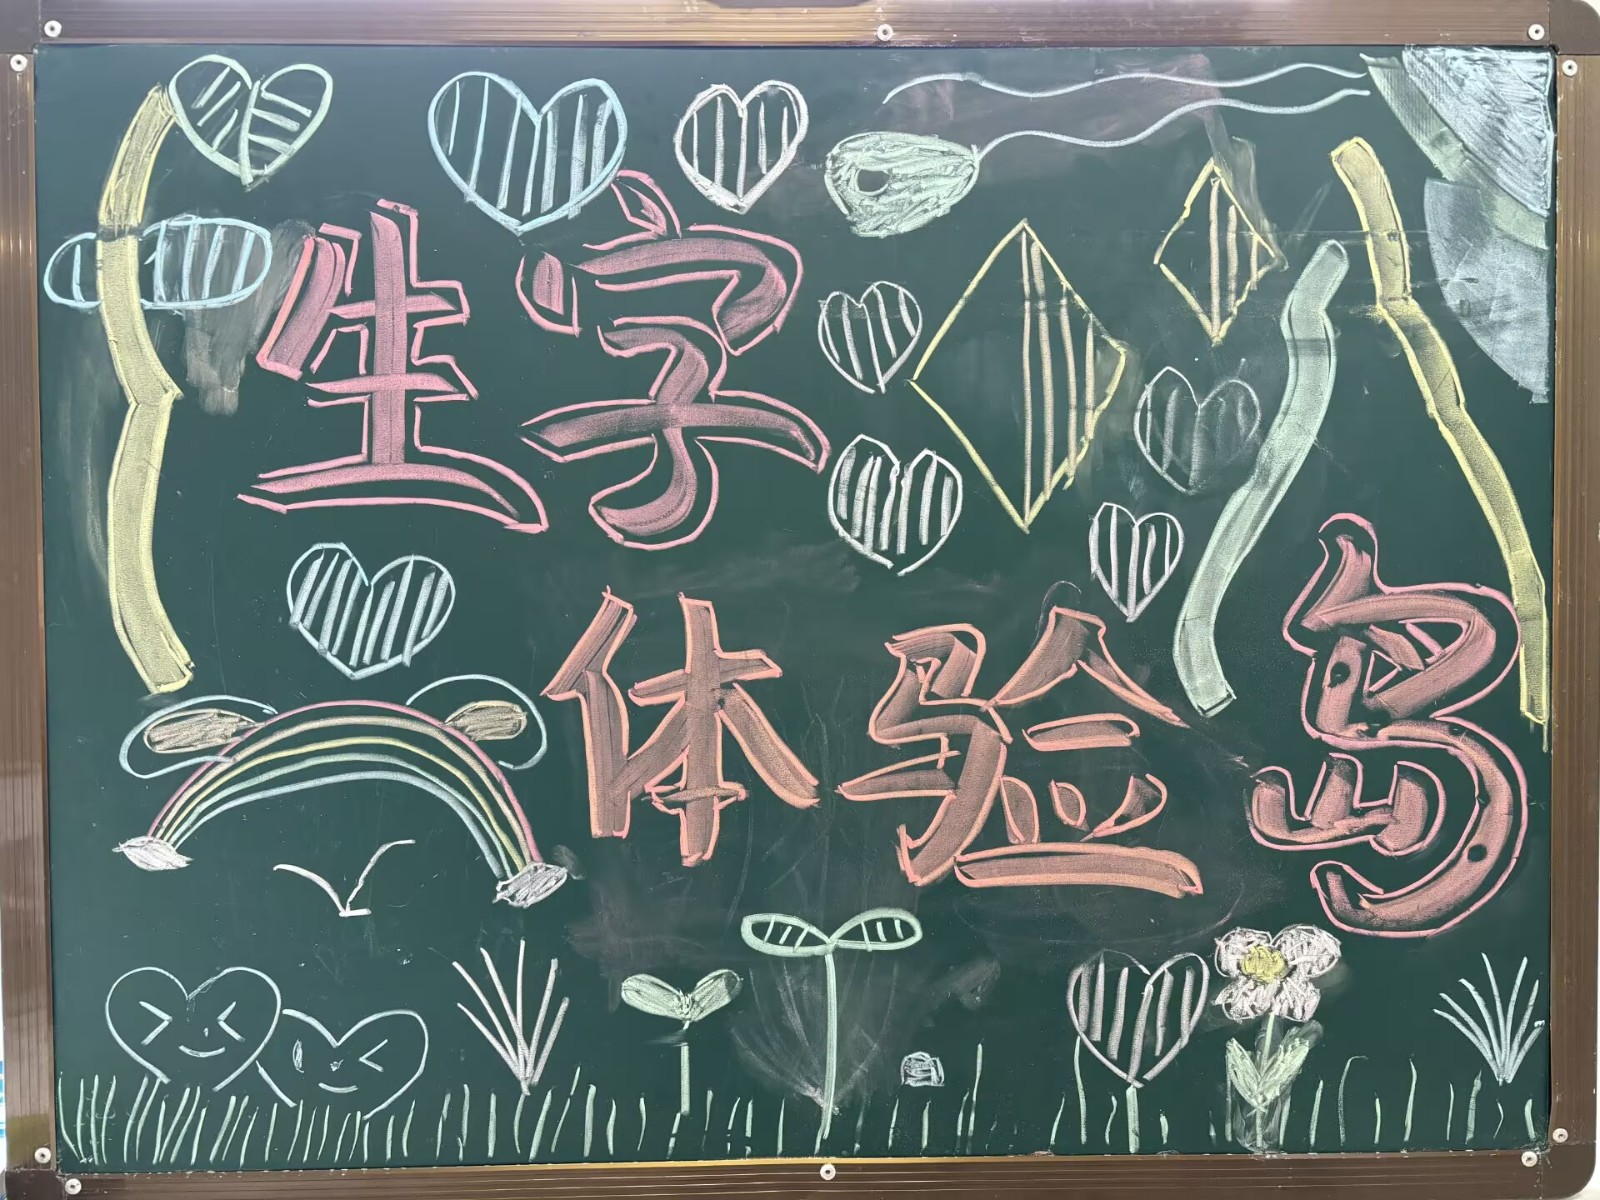 生字
体验岛